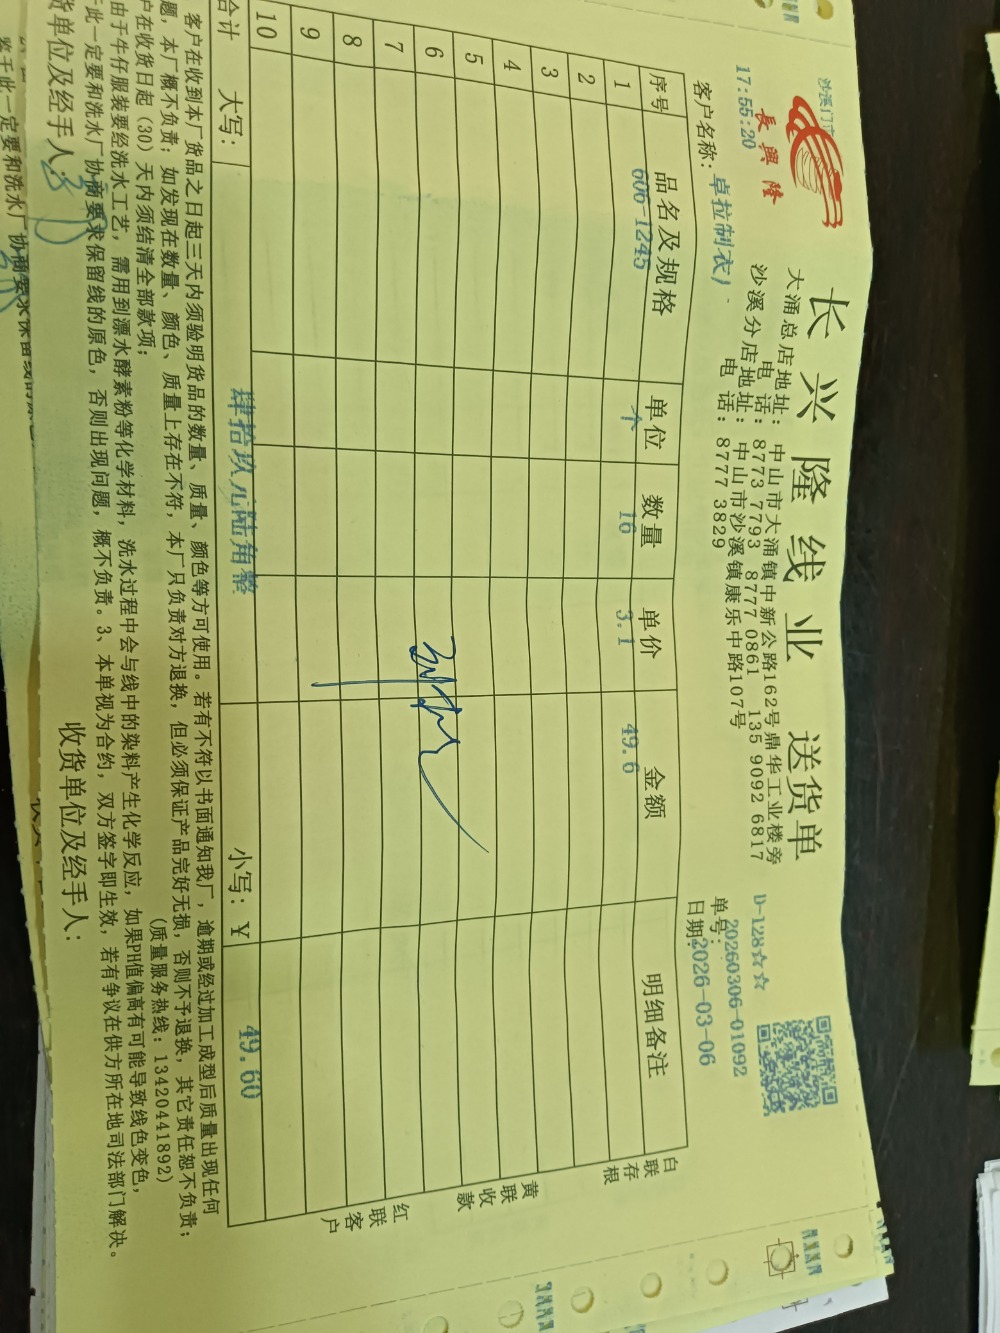 沙溪门市
長興隆
17:55:20
长兴隆线业 送货单
大涌总店地址:中山市大涌镇中新公路162号鼎华工业楼旁
电话:8773 7793 8777 0861 135 9092 6817
沙溪分店地址:中山市沙溪镇康乐中路107号
电话:8777 3829
D-128☆☆
单号:20260306-01092
客户名称:卓拉制衣厂
日期:2026-03-06
序号 品名及规格 单位 数量 单价 金额 明细备注
1 606-1245 个 16 3.1 49.6
2
3
4
5
6
7
8
9
10
合计 大写: 肆拾玖元陆角整 小写:¥ 49.60
白联存根
黄联收款
红联客户
客户在收到本厂货品之日起三天内须验明货品的数量、质量、颜色等方可使用。若有不符以书面通知我厂,逾期或经过加工成型后质量出现任何
题,本厂概不负责;如发现在数量、颜色、质量上存在不符,本厂只负责对方退换,但必须保证产品完好无损,否则不予退换,其它责任恕不负责;
户在收货日起(30)天内须结清全部款项; (质量服务热线:13420441892)
由于牛仔服装要经洗水工艺,需用到漂水酵素粉等化学材料,洗水过程中会与线中的染料产生化学反应,如果PH值偏高有可能导致线色变色,
此一定要和洗水厂协商要求保留线的原色,否则出现问题,概不负责。3、本单视为合约,双方签字即生效,若有争议在供方所在地司法部门解决。
货单位及经手人: 收货单位及经手人:
鉴于此一定要和洗水厂协商要求保留线的